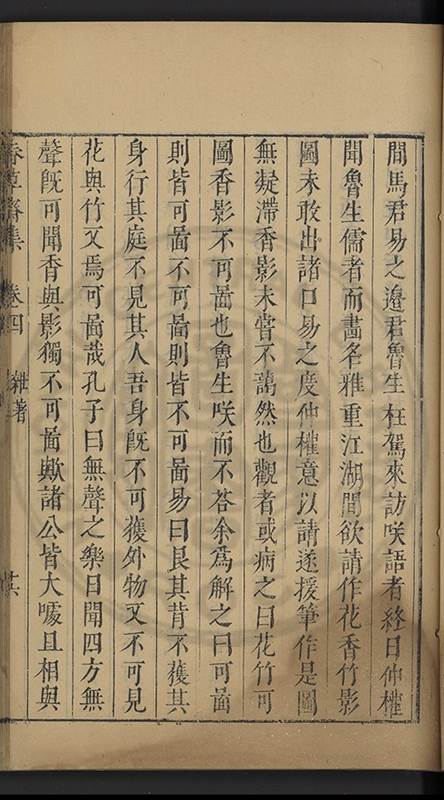 間馬君易之邊君魯生枉駕來訪咲語者終日仲權
聞魯生儒者而畫名雅重江湖間欲請作花香竹影
圖未敢出諸口易之度仲權意以請遂援筆作是圖
無凝滯香影未嘗不藹然也觀者或病之曰花竹可
圖香影不可啚也魯生咲而不荅余為解之曰可啚
則皆可啚不可啚則皆不可啚易曰艮其背不獲其
身行其庭不見其人吾身旣不可獲外物又不可見
花與竹又焉可啚哉孔子曰無聲之樂日聞四方無
聲旣可聞香與影獨不可啚歟諸公皆大噱且相與
卷四 雜著